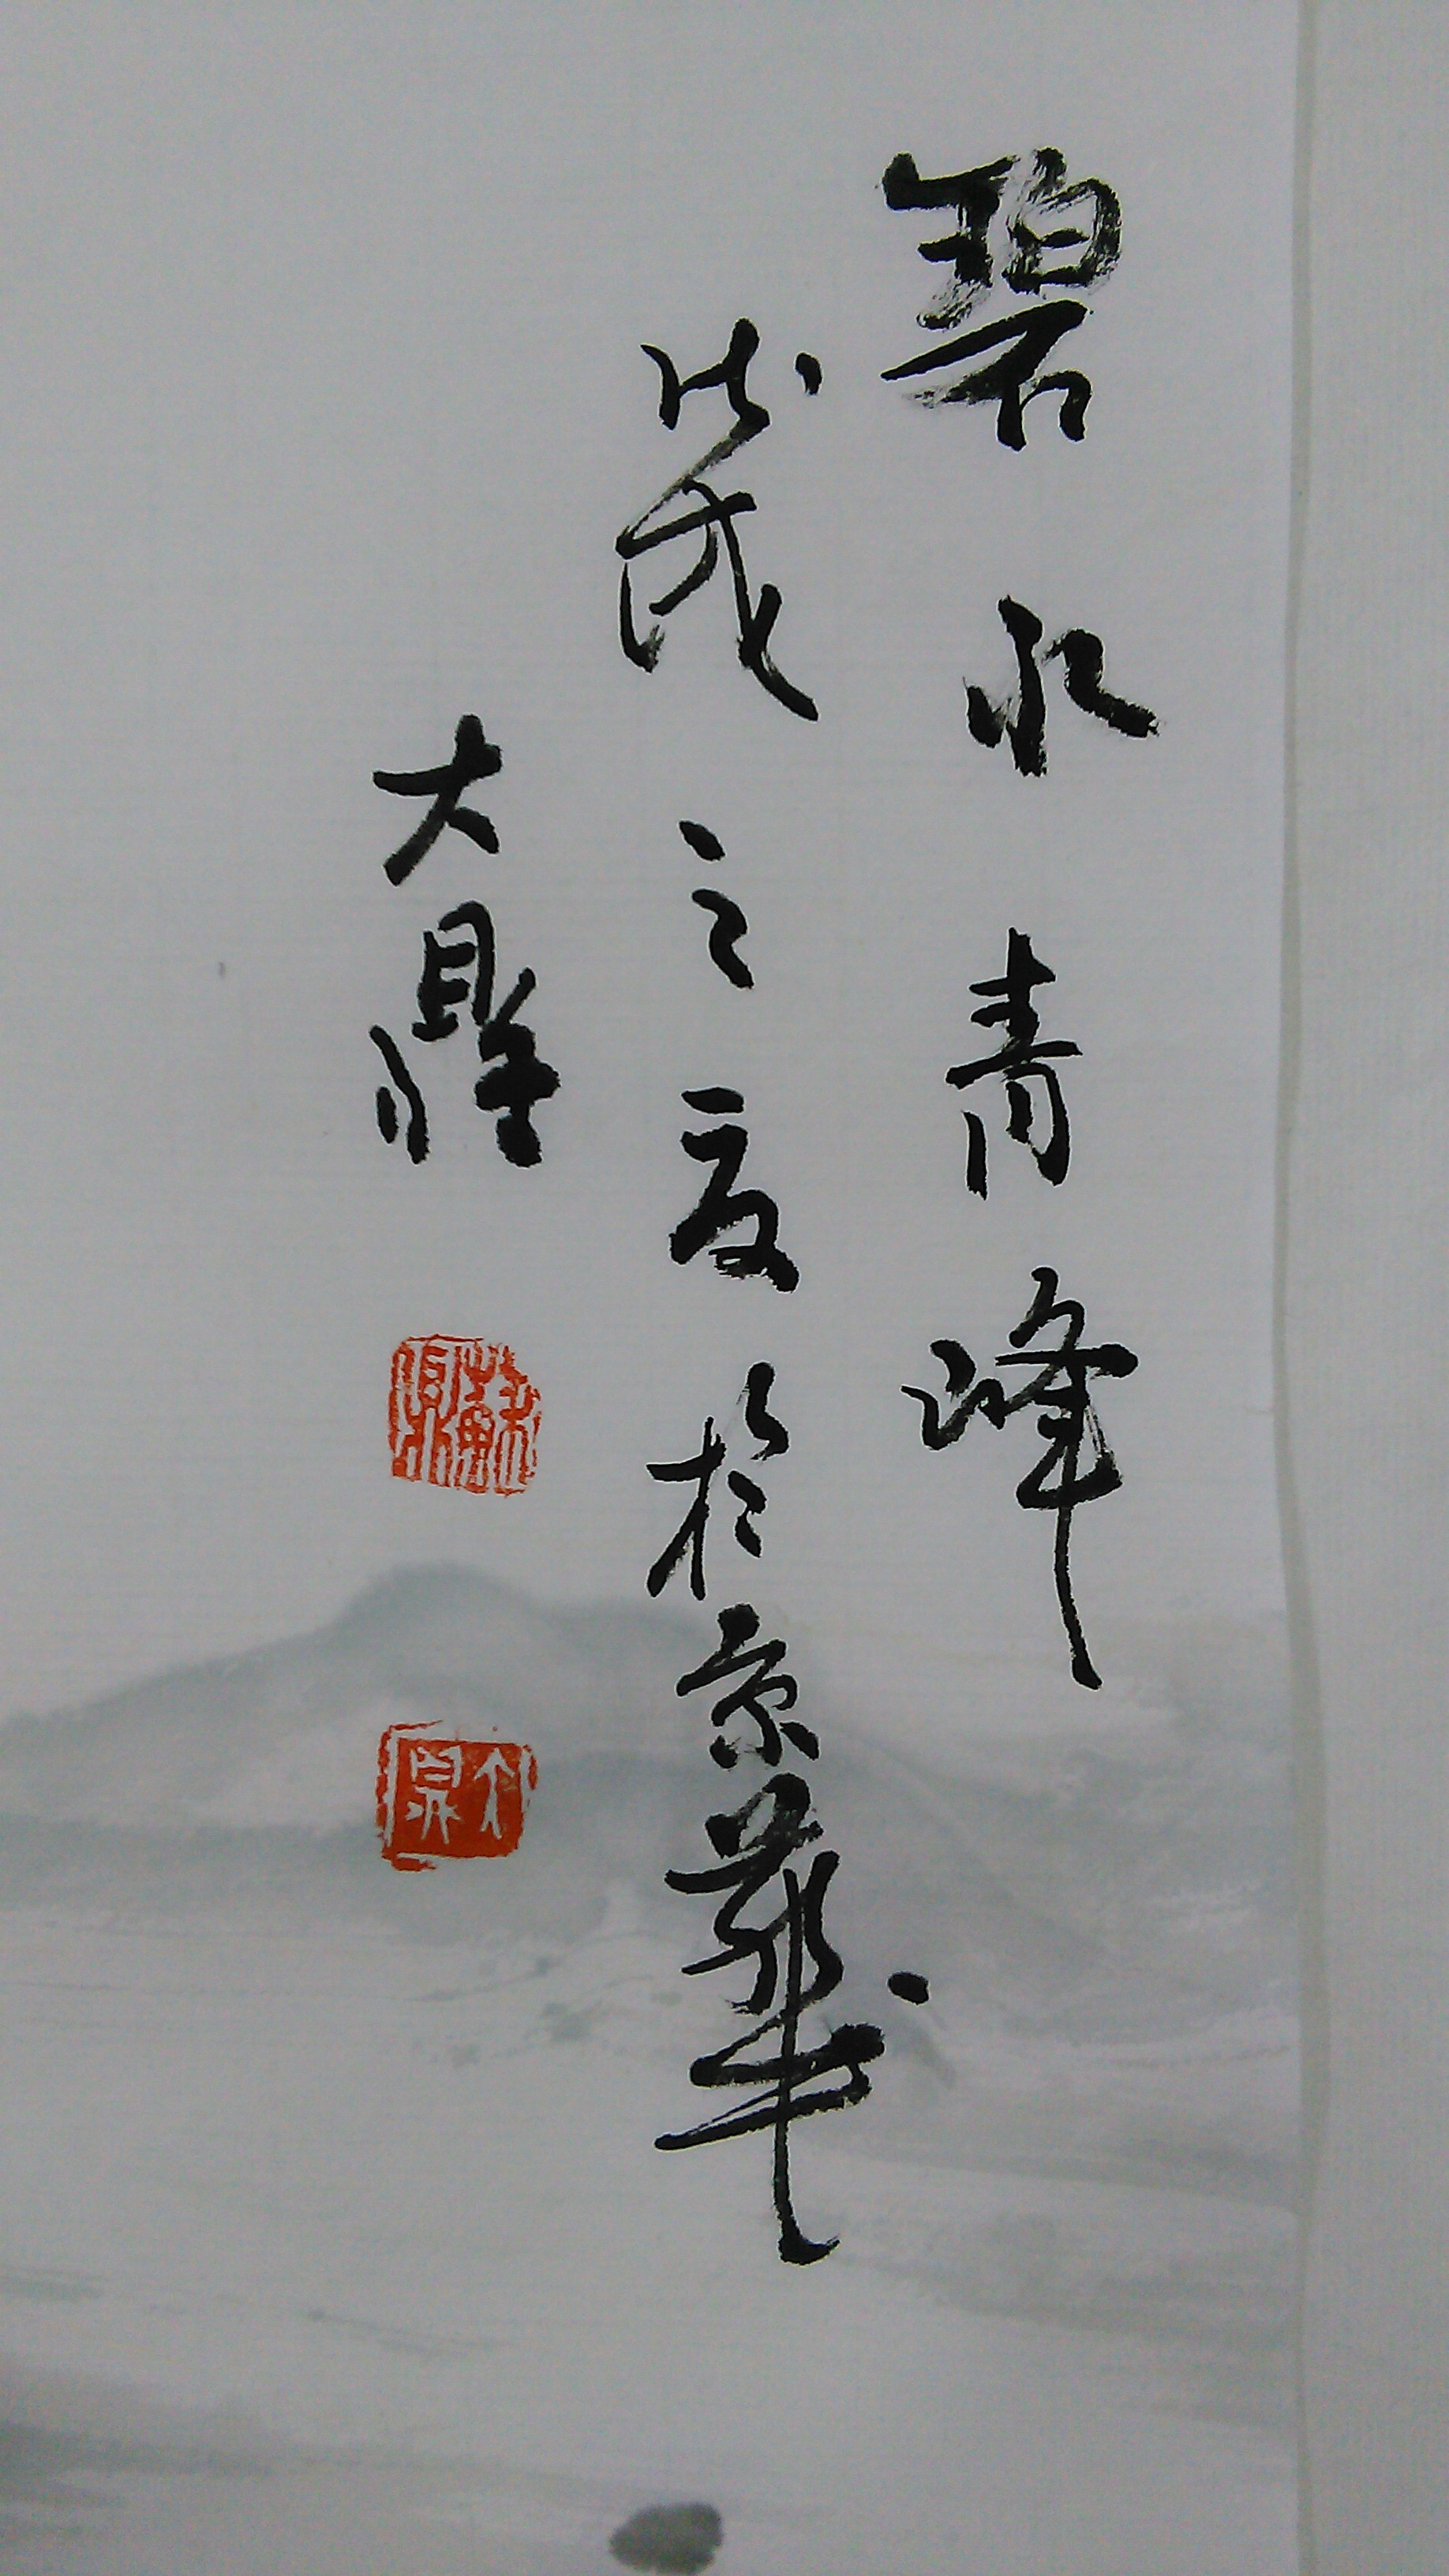 碧水青峰
之夏於京華
大鼎
蘇鼎
大鼎